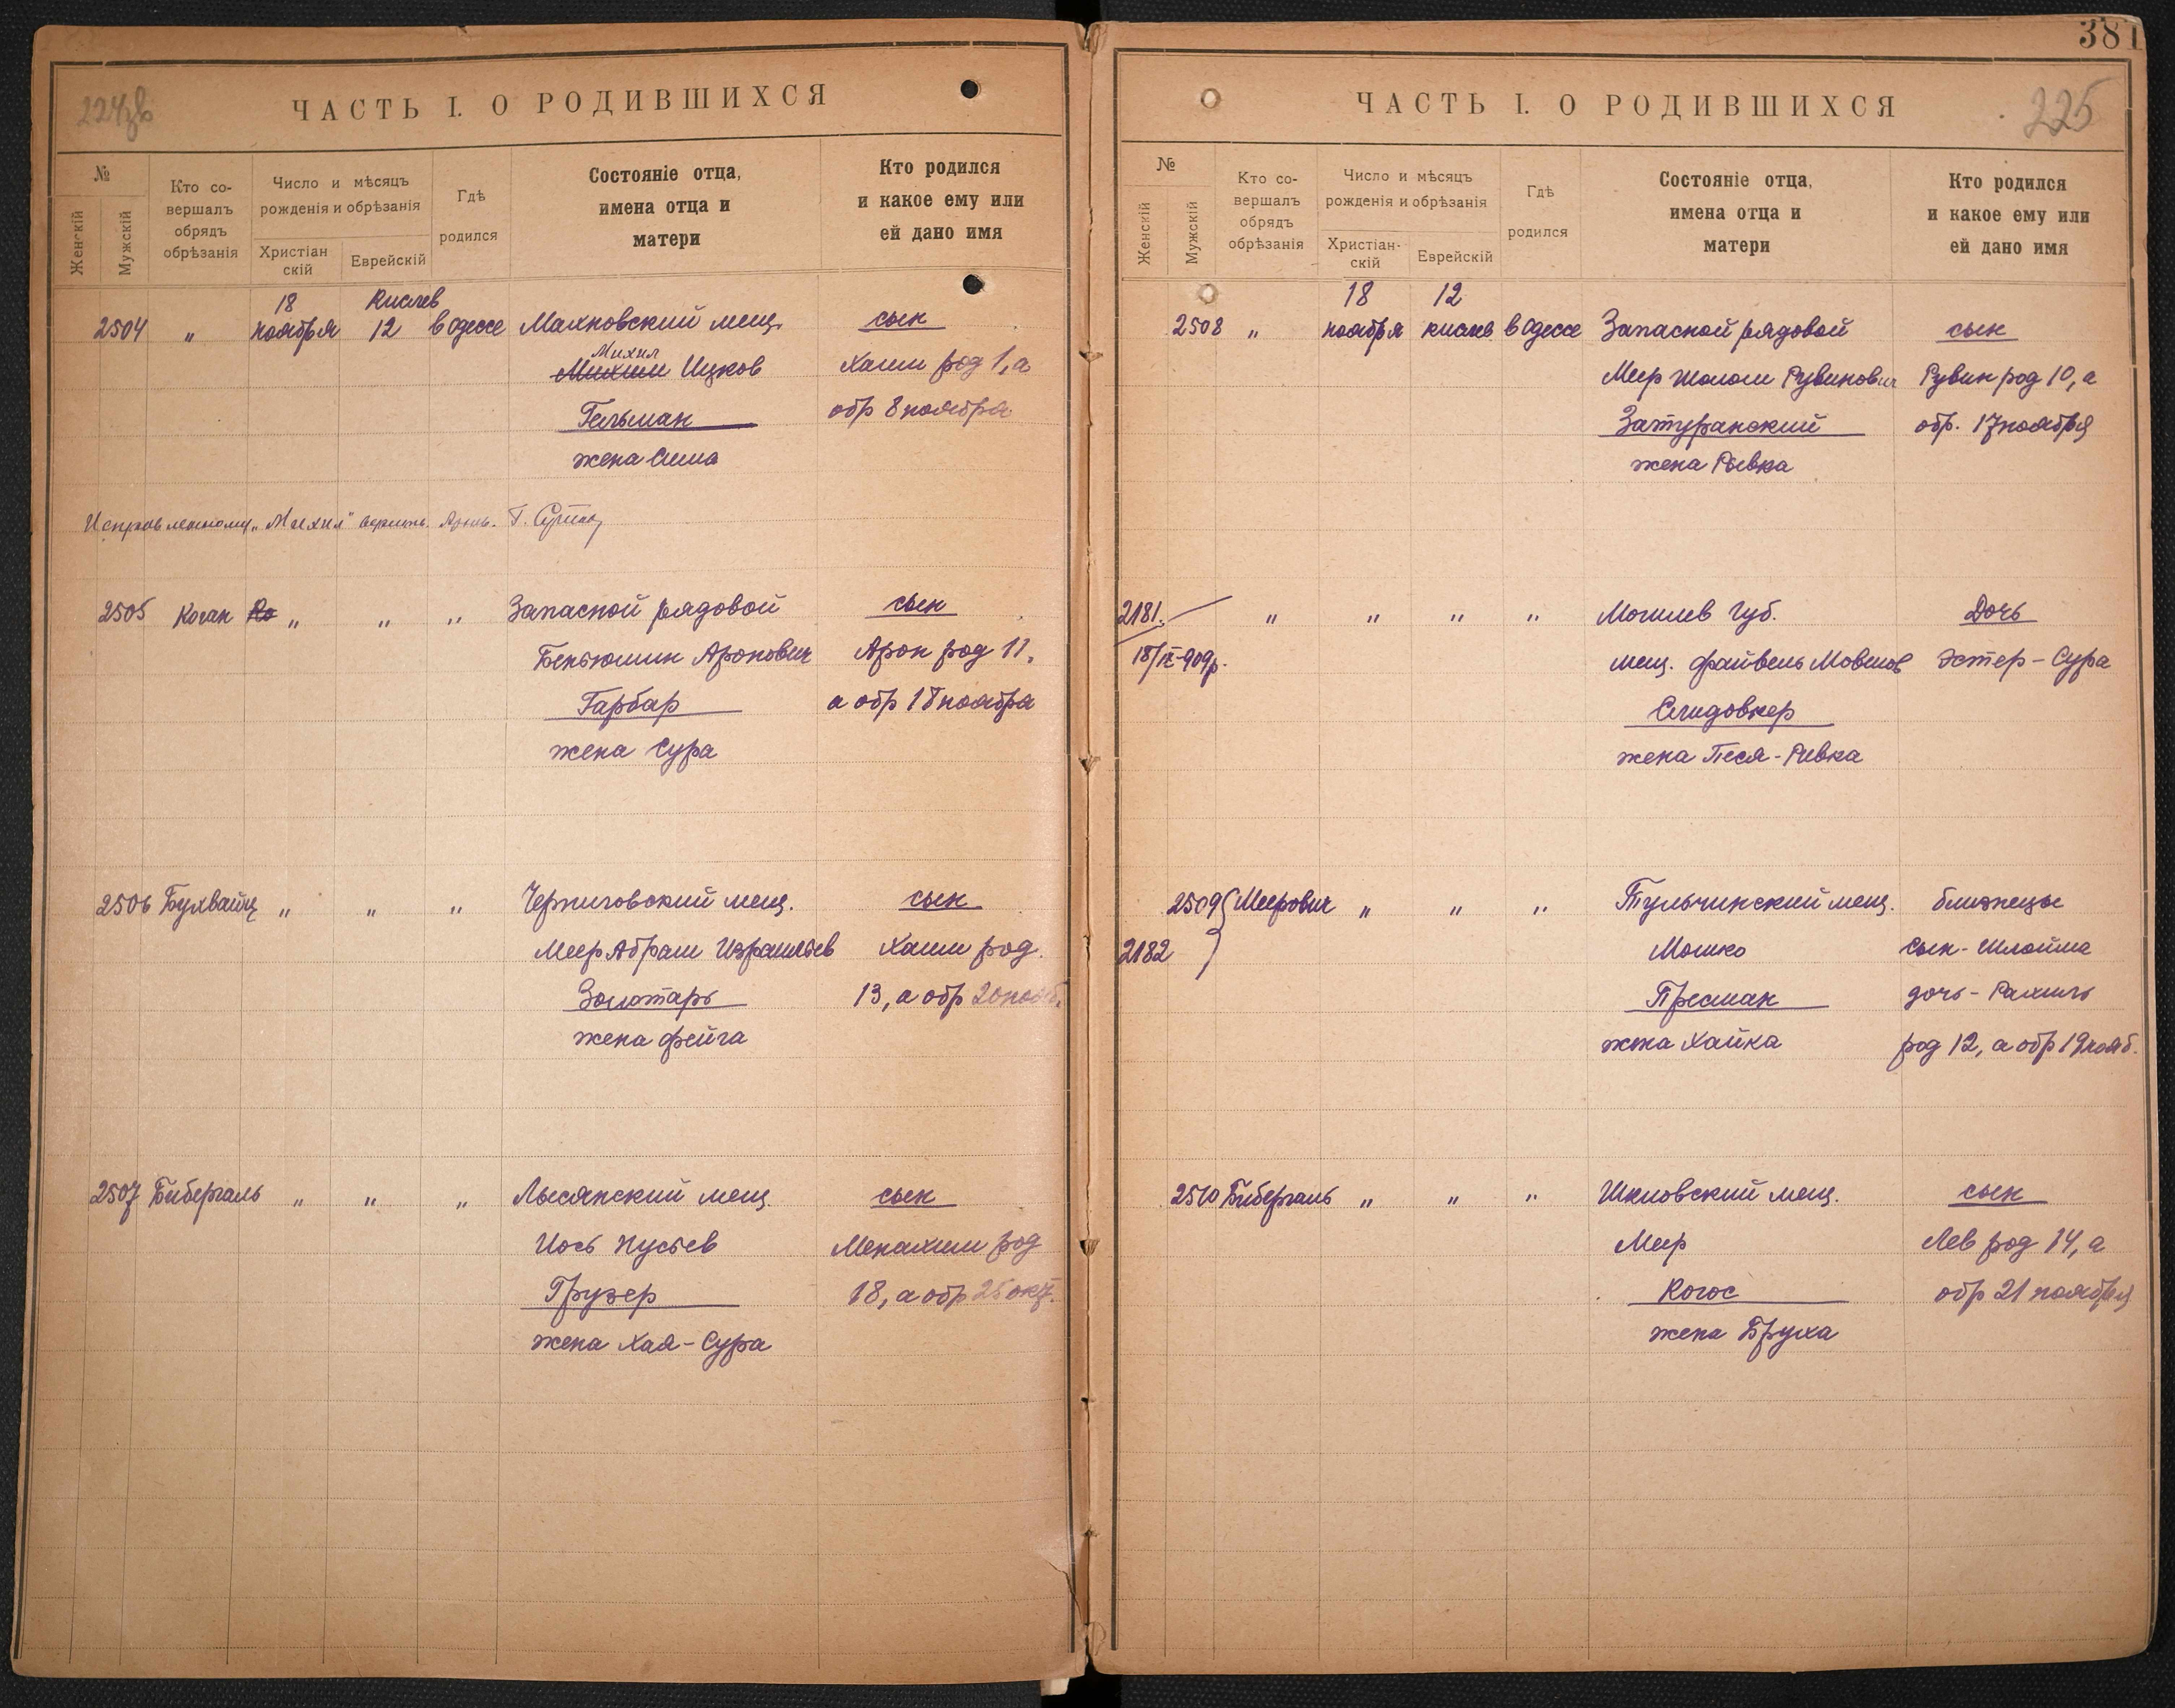 224об
ЧАСТЬ I. О РОДИВШИХСЯ
№
Женскій
Мужскій
Кто со-
вершалъ
обрядъ
обрѣзанія
Число и мѣсяцъ
рожденія и обрѣзанія
Христіан
скій
Еврейскій
Гдѣ
родился
Состояніе отца,
имена отца и
матери
Кто родился
и какое ему или
ей дано имя
18 Кислев
2504 " ноября 12 в Одессе Махновский мещ. сын
Михил
Ицков Хаим род 1, а
Гельман обр 8 ноября
жена Сима
Исправленному "Михил" верить.
2505 Коган " " " Запасной рядовой сын
Беньюмин Аронович Арон род 11,
Гарбар а обр 18 ноября
жена Сура
2506 Бухвайц " " " Черниговский мещ. сын
Меер Абрам Израилев Хаим род.
Золотарь 13, а обр 20 нояб.
жена Фейга
2507 Биберталь " " " Лысянский мещ. сын
Иось Нусьев Менахим род
Грузер 18, а обр 25 окт.
жена Хая-Сура
381
225
ЧАСТЬ I. О РОДИВШИХСЯ
№
Женскій
Мужскій
Кто со-
вершалъ
обрядъ
обрѣзанія
Число и мѣсяцъ
рожденія и обрѣзанія
Христіан-
скій
Еврейскій
Гдѣ
родился
Состояніе отца,
имена отца и
матери
Кто родился
и какое ему или
ей дано имя
18 12
2508 " ноября кислев в Одессе Запасной рядовой сын
Меер Шолом Рувинович Рувин род 10, а
Затуранский обр. 17 ноября
жена Рывка
2181. " " " " Могилев губ. Дочь
18/IX-909г. мещ. Файвель Мовшов Эстер-Сура
Слидовкер
жена Песя-Ривка
2509 Меерович " " " Тульчинский мещ. близнецы
2182 Мошко сын-Шлойма
Пресман дочь-Рахиль
жена Хайка род 12, а обр 19 нояб.
2510 Биберталь " " " Шкловский мещ. сын
Меер Лев род 14, а
Когос обр 21 ноября
жена Бруха